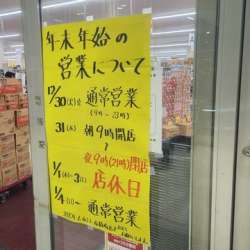 年末年始の
営業について
12/30(火)迄 通常営業
(9時〜23時)
31(水) 朝9時開店
〜
夜9時(21時)閉店
1/1(木)〜3(土) 店休日
1/4(日)〜 通常営業